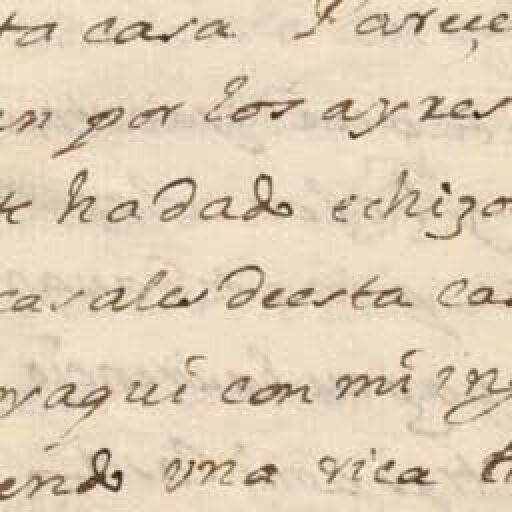 ta casa. Pareçe
en por los ayres
te ha dado echizo
casales de esta cas
oyaqui con mi ing
endo vna rica